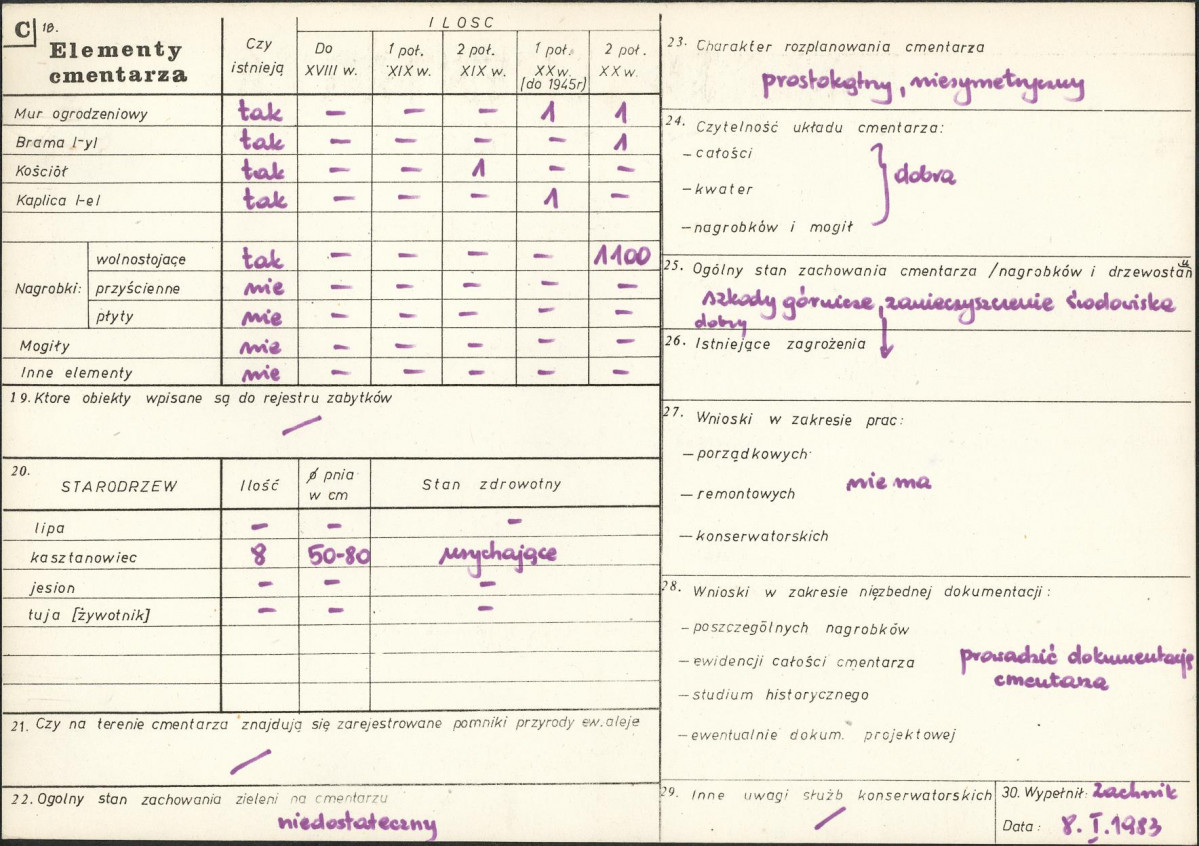 C 18.
Elementy cmentarza
Czy istnieją
ILOSC
Do XVIII w.
1 poł. XIX w.
2 poł. XIX w.
1 poł. XX w. (do 1945r)
2 poł. XX w.
Mur ogrodzeniowy tak — — — 1 1
Brama /-y/ tak — — — — 1
Kościół tak — — 1 — —
Kaplica /-e/ tak — — — 1 —
Nagrobki:
wolnostojące tak — — — — 1100
przyścienne nie — — — — —
płyty nie — — — — —
Mogiły nie — — — — —
Inne elementy nie — — — — —
19. Ktore obiekty wpisane są do rejestru zabytków
/
20.
STARODRZEW Ilość ø pnia w cm Stan zdrowotny
lipa — — —
kasztanowiec 8 50-80 usychające
jesion — — —
tuja [żywotnik] — — —
21. Czy na terenie cmentarza znajdują się zarejestrowane pomniki przyrody ew. aleje
/
22. Ogolny stan zachowania zieleni na cmentarzu
niedostateczny
23. Charakter rozplanowania cmentarza
prostokątny, niesymetryczny
24. Czytelność układu cmentarza:
— całości
— kwater
— nagrobków i mogił
} dobra
25. Ogólny stan zachowania cmentarza /nagrobków i drzewostanu
szkody górnicze, zanieczyszczenie środowiska
dobry
26. Istniejące zagrożenia
27. Wnioski w zakresie prac:
— porządkowych
— remontowych
nie ma
— konserwatorskich
28. Wnioski w zakresie niezbednej dokumentacji:
— poszczególnych nagrobków
— ewidencji całości cmentarza
prowadzić dokumentację
cmentarza
— studium historycznego
— ewentualnie dokum. projektowej
29. Inne uwagi służb konserwatorskich
/
30. Wypełnił: Zachnik
Data: 8. I. 1983